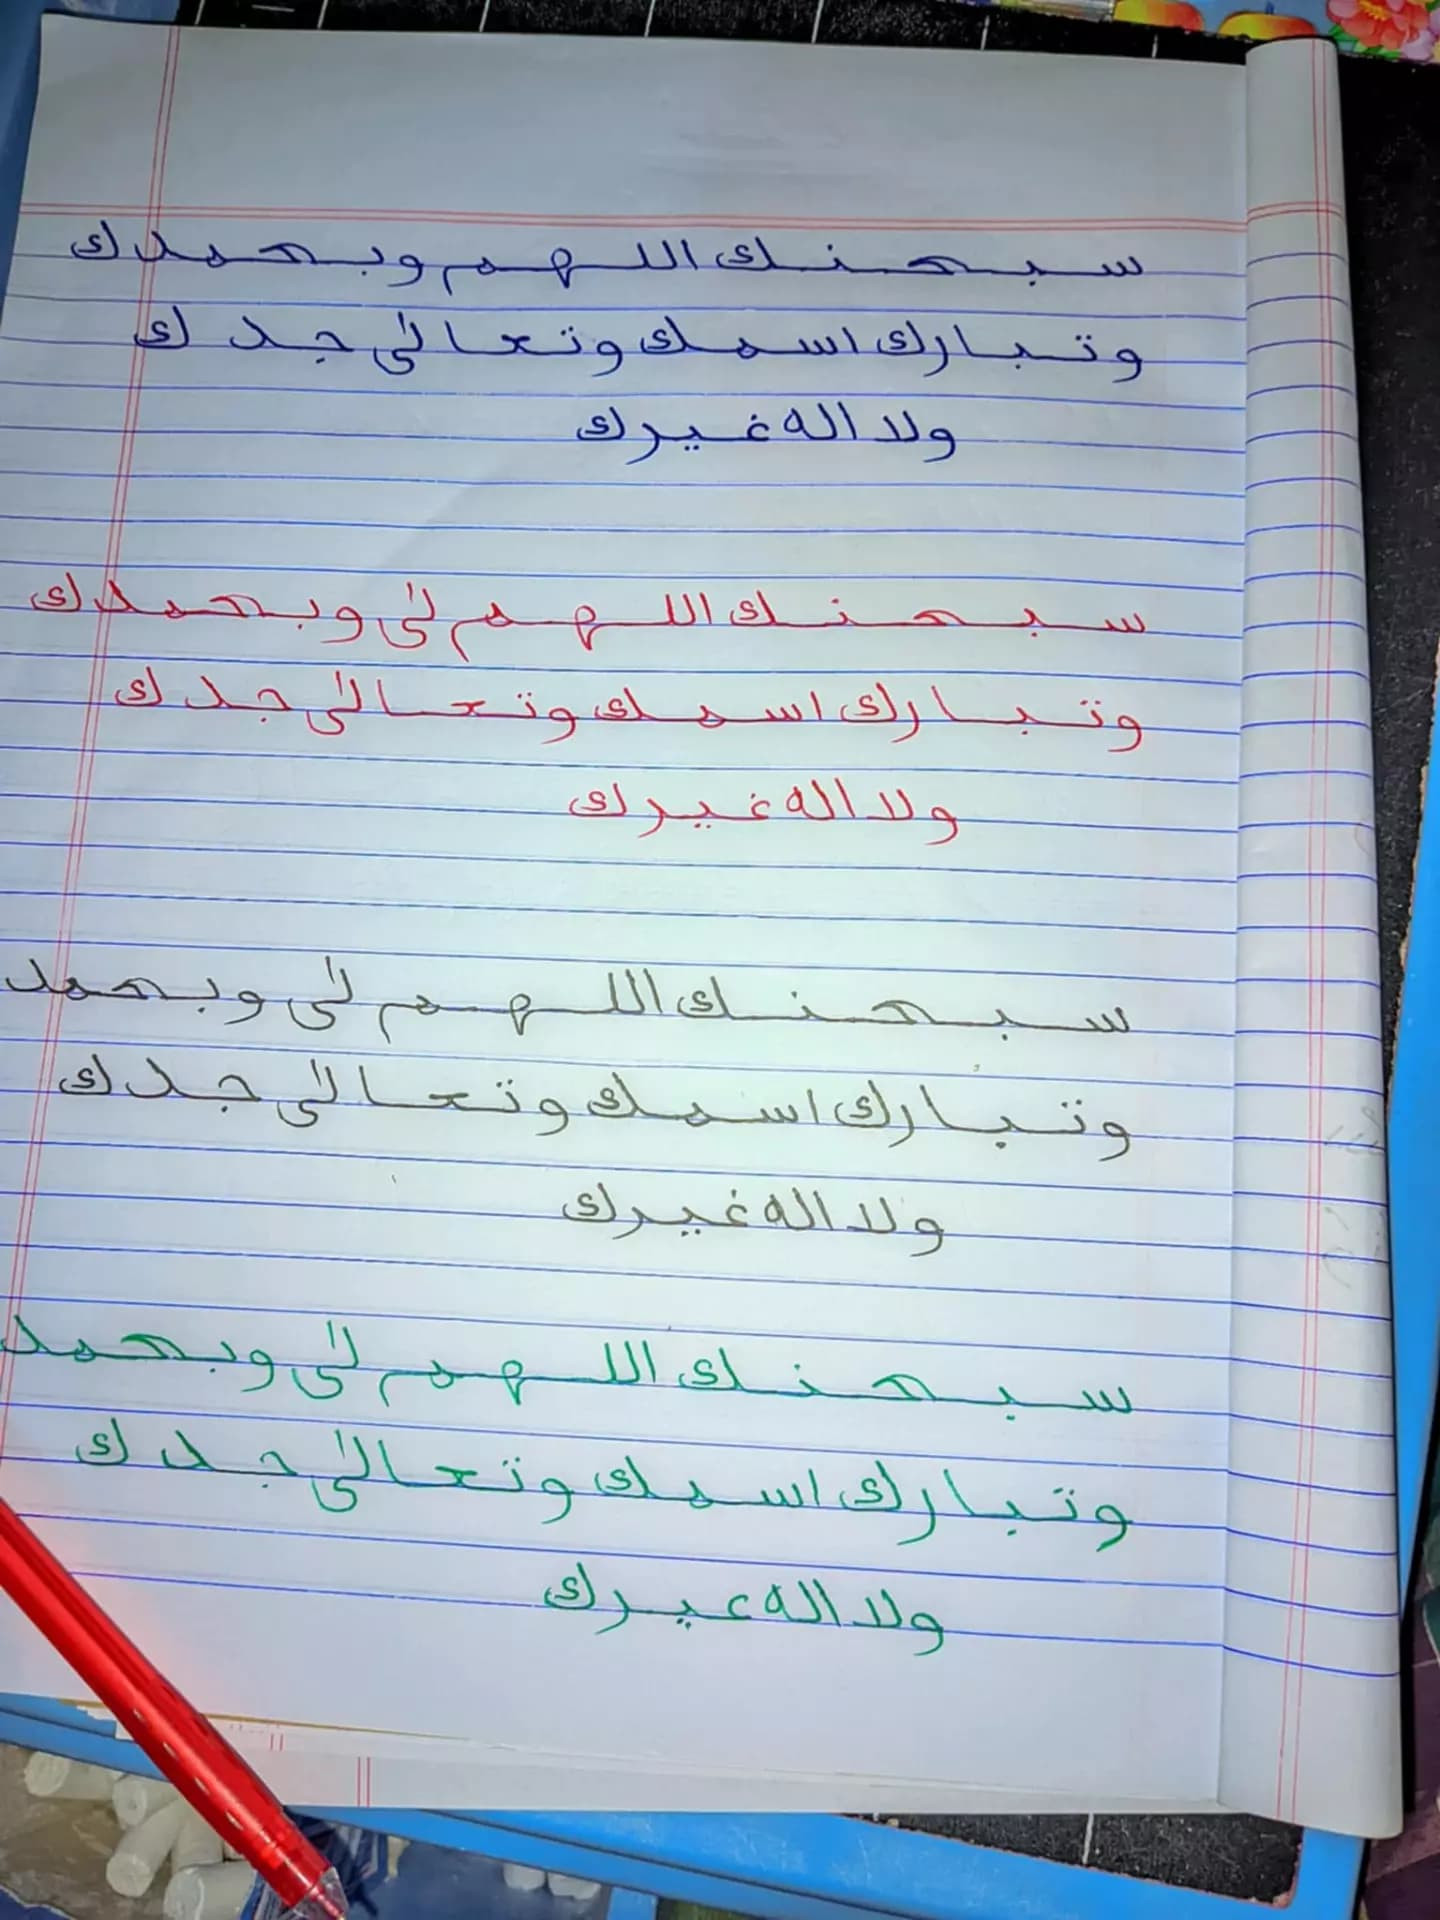 سبحنك اللهم وبحمدك
وتبارك اسمك وتعالىٰ جدك
ولا اله غيرك
سبحنك اللهم لىٰ وبحمدك
وتبارك اسمك وتعالىٰ جدك
ولا اله غيرك
سبحنك اللهم لىٰ وبحمد
وتبارك اسمك وتعالىٰ جدك
ولا اله غيرك
سبحنك اللهم لىٰ وبحمد
وتبارك اسمك وتعالىٰ جدك
ولا اله عيرك